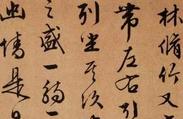 林脩竹又
帶左右引
列坐其次
之盛一觴一
幽情是日